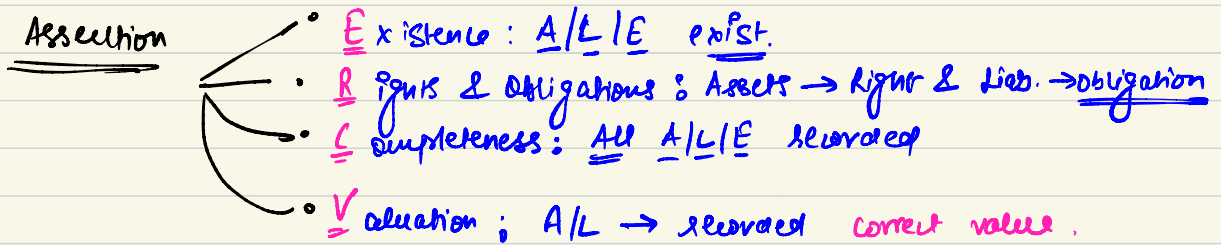 Assertion
Existence : A/L/E exist.
Rights & Obligations : Assets → Right & Liab. → obligation
Completeness : All A/L/E recorded
Valuation ; A/L → recorded correct value.